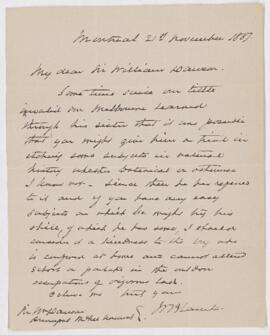 Montreal 21st November 1887
My dear Sir William Dawson
Some time since our little
invalid son Melbourne learned
through his sister that it was possible
that you might give him a trial in
etching some subjects in natural
history whether botanical or otherwise
I know not — Since then he has referred
to it and if you have any easy
subjects on which he might try his
skill, of which he has some, I should
consider it a kindness to the boy who
is confined at home and cannot attend
school or partake in the outdoor
occupations of vigorous lads.
Believe me but yours
Sir Wm Dawson
Principal McGill